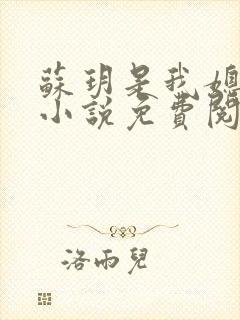 蘇玥是我媳
小說免費閱
洛雨兒